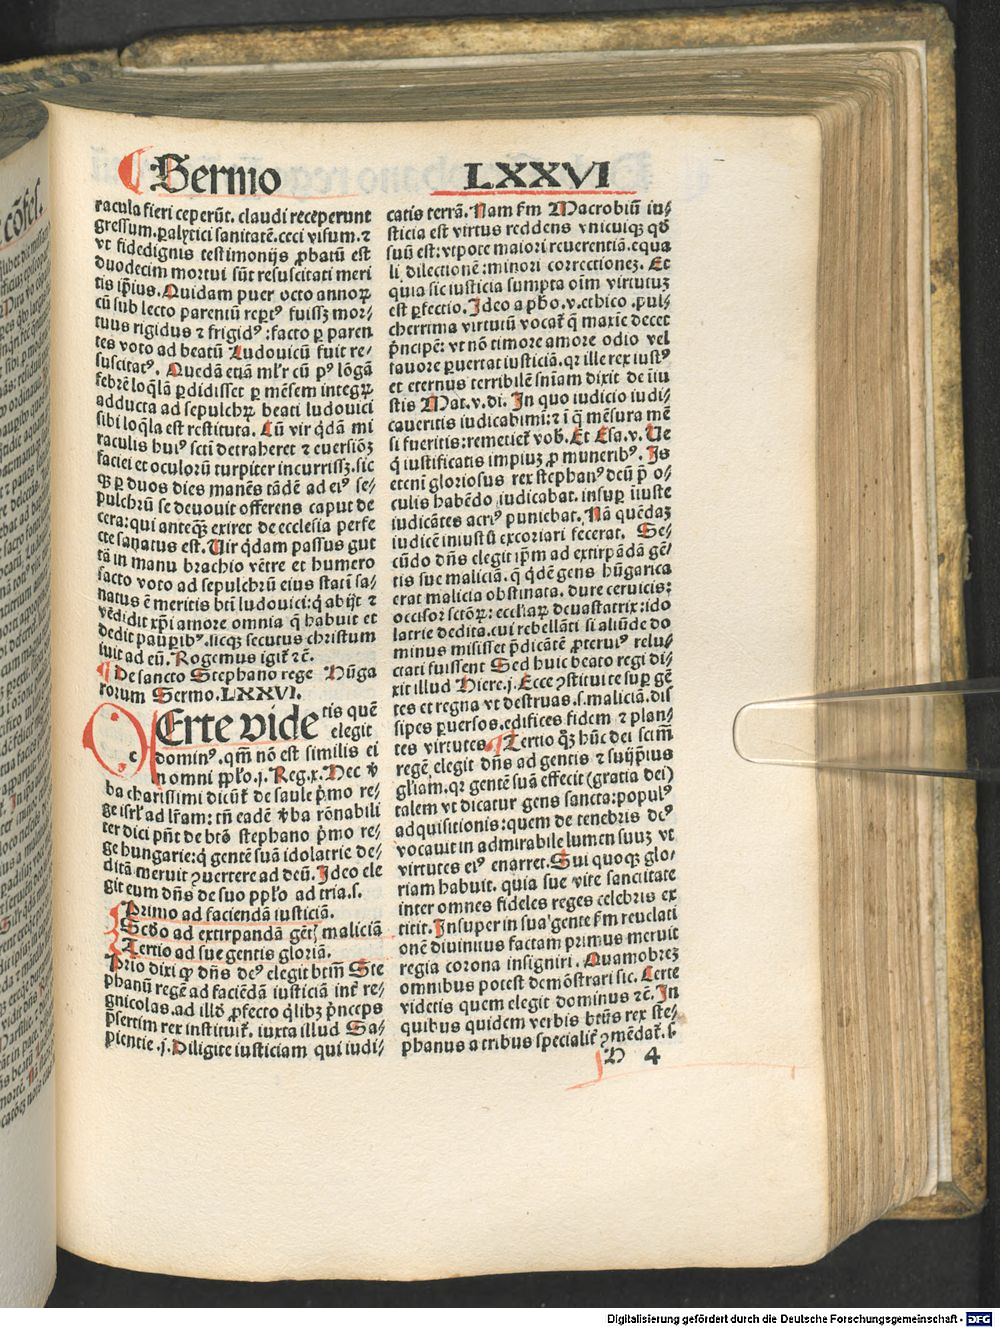 ¶ Sermo LXXVI
racula fieri ceperūt. claudi receperunt
gressum. ꝑalytici sanitatē. ceci visum. ⁊
vt fidedignis testimonijs ꝓbatū est
duodecim mortui sūt resuscitati meri
tis ip̄ius. Quidam puer octo annoꝝ
cū sub lecto parentū reꝑtꝰ fuissꝫ mor⸗
tuus rigidus ⁊ frigidꝰ : facto ꝑ paren
tes voto ad beatū Ludouicū fuit re⸗
suscitatꝰ. Quedā etiā ml̄r cū pꝰ lōgā
febrē loq̄lā ꝑdidisset ꝑ mēsem integꝝ
adducta ad sepulchꝝ beati ludouici
sibi loq̄la est restituta. Cū vir q̇dā mi
raculis huiꝰ scti detraheret ⁊ euersiōꝫ
faciei et oculorū turpiter incurrissꝫ. sic
ꝙ ꝑ duos dies manēs tādē ad eiꝰ se⸗
pulchrū se deuouit offerens caput de
cera: qui anteqꝫ exiret de ecclesia perfe
cte sanatus est. Uir q̇dam passus gut
tā in manu brachio vētre et humero
facto voto ad sepulchrū eius statī sa⸗
natus ē meritis bt̄i ludouici: q̇ abijt ⁊
vēdidit xp̄i amore omnia q̄ habuit et
dedit pauꝑibꝰ. sicqꝫ secutus christum
iuit ad eū. Rogemus igit̄ ⁊c̄.
¶ De sancto Stephano rege Hūga
rorum Sermo. LXXVI.
CErte vide tis quē
elegit
dominꝰ. qm̄ nō est similis ei
in omni ppl̄o. j. Reg. x. Hec v̄
ba charissimi dicūt̄ de saule p̄mo re⸗
ge isrl̄ ad lr̄am: tn̄ eadē v̄ba rōnabili
ter dici pn̄t de btō stephano p̄mo re⸗
ge hungarie: q̇ gentē suā idolatrie de⸗
ditā meruit ꝯuertere ad deū. Ideo ele
git eum dn̄s de suo ppl̄o ad tria. s.
Primo ad faciendā iusticiā.
Scd̄o ad extirpandā gēt̄ꝫ maliciā
Tertio ad sue gentis gloriā.
Prīo dixi ꝙ dn̄s deꝰ elegit btm̄ Ste
phanū regē ad faciēdā iusticiā int̄ re⸗
gnicolas. ad illd̄ ꝓfecto q̇libꝫ p̄nceps
p̄sertim rex instituit̄. iuxta illud Sa⸗
pientie. j. Diligite iusticiam qui iudi⸗
catis terrā. Nam ẜm Macrobiū iu⸗
sticia est virtus reddens vnicuiqꝫ qd̄
suū est: vtpote maiori reuerentiā. equa
li dilectionē: minori correctioneꝫ. Et
quia sic iusticia sumpta oīm virtutuꝫ
est ꝑfectio. Ideo a pho. v. ethico. pul⸗
cherrima virtutū vocat̄ q̄ maxīe decet
p̄ncipē: vt nō timore amore odio vel
fauore ꝑuertat iusticiā. qꝛ ille rex iustꝰ
et eternus terribilē sniam dixit de iiu
stis Mat. v. di. In quo iudicio iudi⸗
caueritis iudicabimi: ⁊ ī q̄ mēsura mē
si fueritis: remetiet̄ vob̄. Et Esa. v. Ue
q̇ iustificatis impiuꝫ ꝓ muneribꝰ. Is
etcni gloriosus rex stephanꝰ deū p̄ o⸗
culis habēdo iudicabat. insuꝑ iiuste
iudicātes acriꝰ puniebat. Nā quēdaꝫ
iudicē iniustū excoriari fecerat. Se⸗
cūdo dn̄s elegit ip̄m ad extirpādā gē⸗
tis sue maliciā. q̄ q̇dē gens hūgarica
erat malicia obstinata. dure ceruicis:
occisor sctōꝝ: eccl̄iaꝝ deuastatrix: ido
latrie dedita. cui rebellāti si aliūde do
minus misisset p̄dicātē ꝓteruiꝰ relu⸗
ctati fuissent Sed huic beato regi di⸗
xit illud Hiere. j. Ecce ꝯstitui te suꝑ gē
tes et regna vt destruas. s. maliciā. dis
sipes ꝑuersos. edifices fidem ⁊ plan⸗
tes virtutes. ¶ Tertio q̇ꝫ hūc dei scīm̄
regē elegit dn̄s ad gentis ⁊ sui ip̄ius
gl̄iam. qꝛ gentē suā effecit (gratia dei)
talem vt dicatur gens sancta: populꝰ
adquisitionis: quem de tenebris deꝰ
vocauit in admirabile lumen suuꝫ vt
virtutes eiꝰ enarret. Sui quoqꝫ glo⸗
riam habuit. quia sue vite sanctitate
inter omnes fideles reges celebris ex
titit. Insuper in sua gente ẜm reuelati
onē diuinitus factam primus meruit
regia corona insigniri. Quamobreꝫ
omnibus potest demōstrari sic. Certe
videtis quem elegit dominus ⁊c̄. In
quibus quidem verbis btūs rex ste⸗
phanus a tribus specialit̄ ꝯmēdat̄. s.
D 4
Digitalisierung gefördert durch die Deutsche Forschungsgemeinschaft - DFG